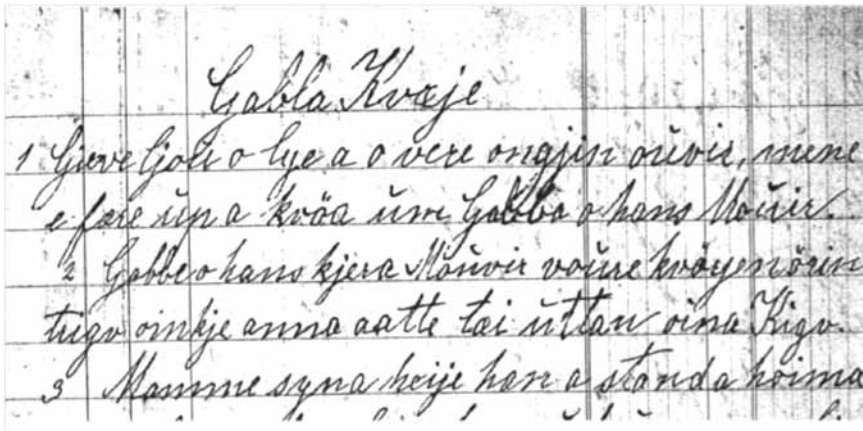 Gabla Kvæje
1 Gjæve Ljou o lye a o vere ongjin ouvir, mene
e fære up a kväa um Gabba o hans Mouir.
2 Gabbe o hans kjera Mouvir voure kvörjen örin
trigo oinkje anna aatte tai uttan oina Kigv.
3 Mamme syna heije hava standa hoima